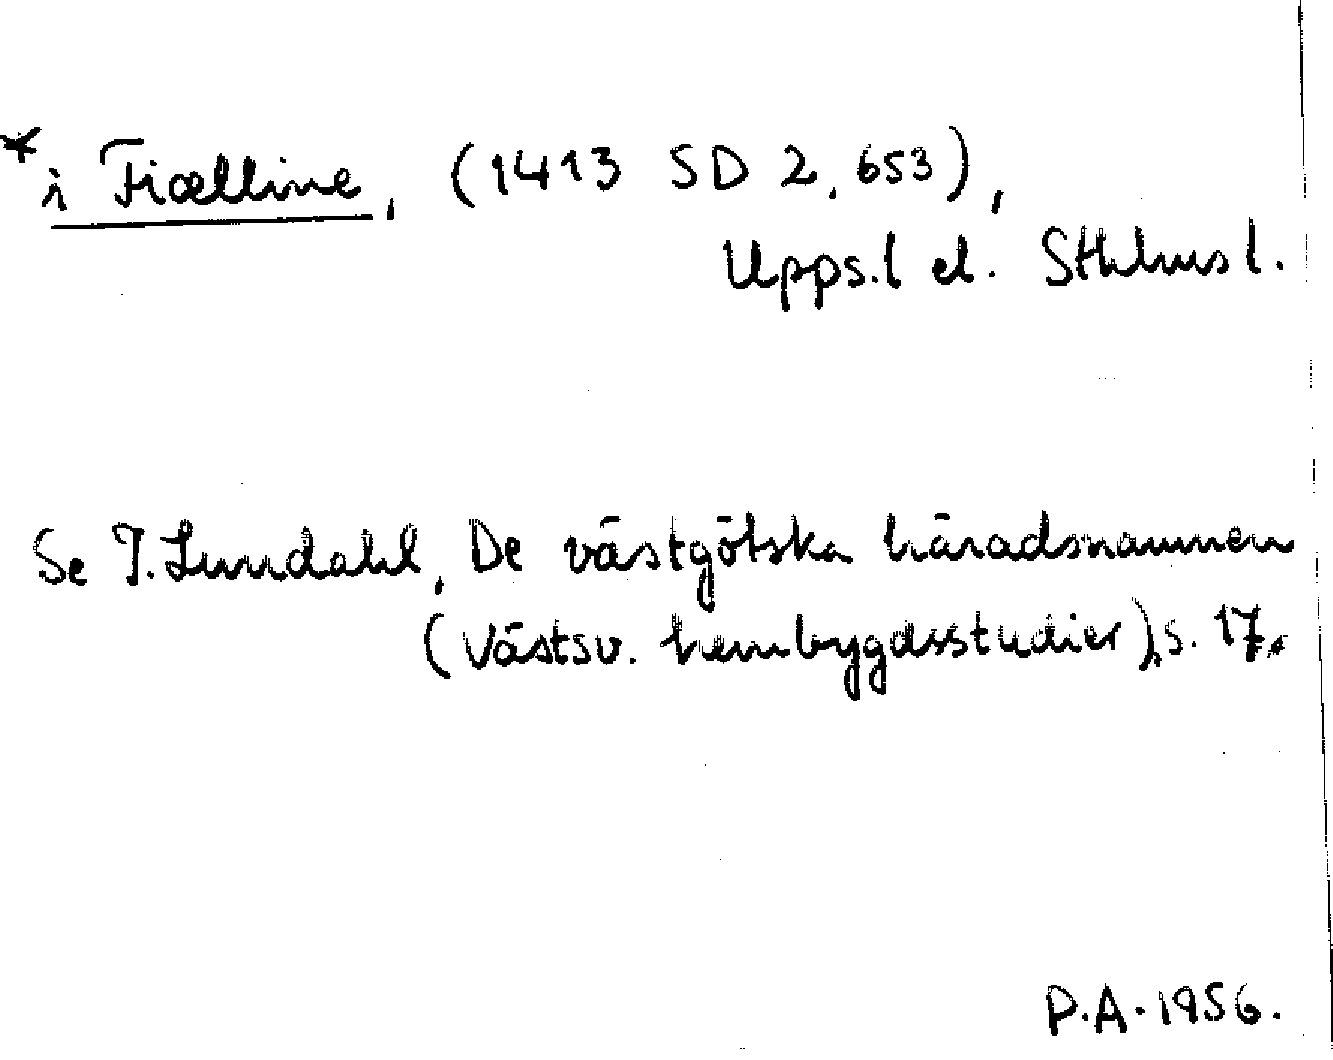 * i Fiælline, (1413 SD 2, 653),
Upps.l el. Sthlms l.
Se I. Lundahl, De västgötska häradsnamnen
(Västsv. hembygdsstudier), s. 17.
P.A. 1956.